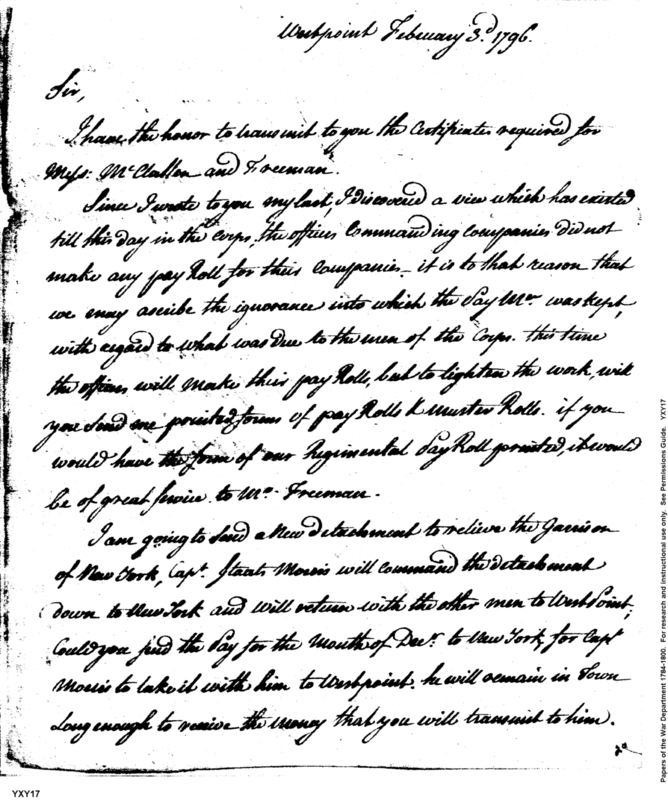 Westpoint February 3d. 1796.
Sir,
I have the honor to transmit to you the Certificates required for
Mess: McClallen and Freeman.
Since I wrote to you my last, I discovered a vice which has existed
till this day in the Corps. the officers Commanding Companies did not
make any pay Roll for their Companies - it is to that reason that
we may ascibe the ignorance into which the Pay Mer was kept,
with regard to what was due to the men of the Corps. this time
the officers will make their pay Rolls, but to lighten the work, will
you send me printed forms of pay Rolls & muster Rolls. if you
would have the form of our Regimental Pay Roll printed, it would
be of great service to Mr. Freeman.
I am going to send a New detachment to relieve the Garrison
of New York, Capt. Staats Morris will command the detachment
down to New York and will return with the other men to West Point;
Could you send the Pay for the Month of Decr. to New York, for Capt
Morris to take it with him to Westpoint. he will remain in Town
Long enough to receive the money that you will transmit to him.
Papers of the War Department 1784-1800. For research and instructional use only. See Permissions Guide. YXY17
YXY17